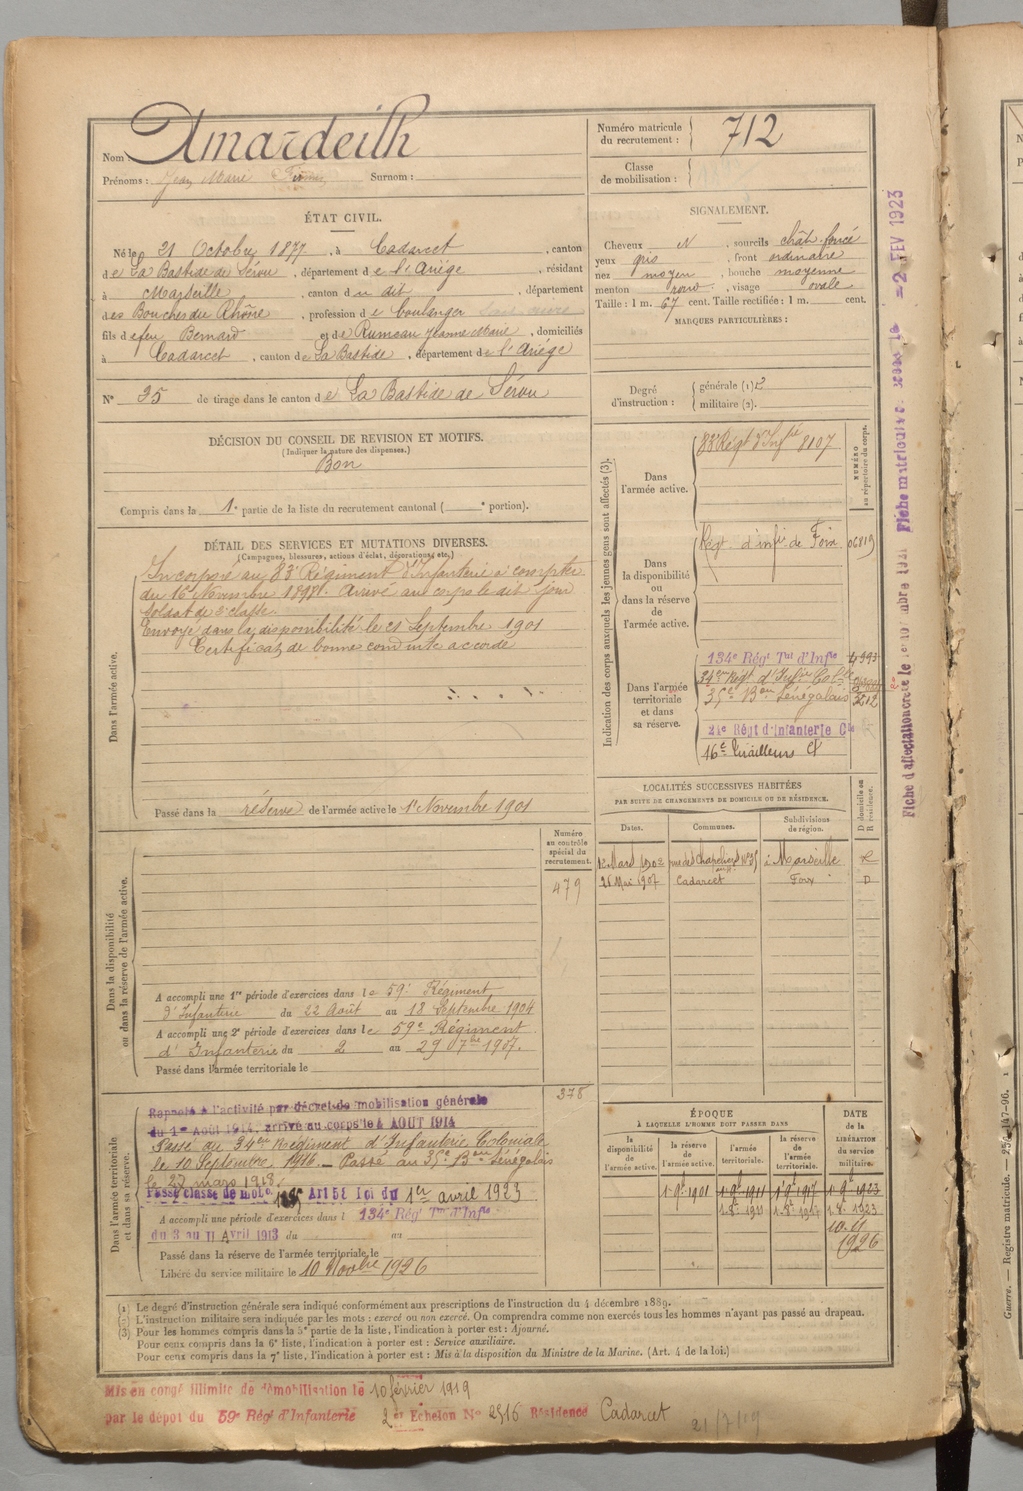 Nom Amardeilh
Prénoms : Jean Marie Firmin Surnom :
Numéro matricule du recrutement : 712
Classe de mobilisation :
ÉTAT CIVIL.
Né le 21 Octobre 1877, à Cadarcet, canton
de La Bastide de Sérou, département de l'Ariége, résidant
à Marseille, canton du dit, département
des Bouches du Rhône, profession de boulanger
fils de feu Bernard et de Rumeau Jeanne Marie, domiciliés
à Cadarcet, canton de La Bastide, département de l'Ariége
N° 25 de tirage dans le canton de La Bastide de Sérou
SIGNALEMENT.
Cheveux N, sourcils chât. foncé
yeux gris, front ordinaire
nez moyen, bouche moyenne
menton rond, visage ovale
Taille : 1 m. 67 cent. Taille rectifiée : 1 m. cent.
MARQUES PARTICULIÈRES :
Degré d'instruction : générale (1)
militaire (2).
DÉCISION DU CONSEIL DE REVISION ET MOTIFS.
(Indiquer la nature des dispenses.)
Bon
Compris dans la 1e partie de la liste du recrutement cantonal ( e portion).
DÉTAIL DES SERVICES ET MUTATIONS DIVERSES.
(Campagnes, blessures, actions d'éclat, décorations, etc.)
Dans l'armée active.
Incorporé au 83e Régiment d'Infanterie à compter
du 16 Novembre 1898. Arrivé au corps le dit jour
Soldat de 2e classe.
Envoyé dans la disponibilité le 21 Septembre 1901
Certificat de bonne conduite accordé
Passé dans la réserve de l'armée active le 1er Novembre 1901
Indication des corps auxquels les jeunes gens sont affectés (3).
NUMÉRO au répertoire du corps.
Dans l'armée active.
83e Régt d'Infie 8107
Dans la disponibilité ou dans la réserve de l'armée active.
Régt d'infie de Foix 06819
Dans l'armée territoriale et dans sa réserve.
134e Régt Tal d'Infie 4993
34eme Régt d'Infie Colle
35e Bon Sénégalais 3512
21e Régt d'Infanterie Cle
16e Tirailleurs
LOCALITÉS SUCCESSIVES HABITÉES
PAR SUITE DE CHANGEMENTS DE DOMICILE OU DE RÉSIDENCE.
Dates. Communes. Subdivisions de région. D domicile ou R résidence.
12 Mars 1902 rue des Chapeliers N° 35 à Marseille R
25 Mai 1907 Cadarcet Foix D
Numéro au contrôle spécial du recrutement.
479
Dans la disponibilité ou dans la réserve de l'armée active.
A accompli une 1re période d'exercices dans le 59e Régiment
d'Infanterie du 22 Août au 18 Septembre 1904
A accompli une 2e période d'exercices dans le 59e Régiment
d'Infanterie du 2 au 29 7bre 1907.
Passé dans l'armée territoriale le
378
Dans l'armée territoriale et dans sa réserve.
Rappelé à l'activité par décret de mobilisation générale
du 1er Août 1914, arrivé au corps le 4 AOUT 1914
Passé au 34eme Régiment d'Infanterie Coloniale
le 10 Septembre 1916. — Passé au 35e Bon Sénégalais
le 27 mars 1918.
Passé classe de mob. Art 58 loi du 1er avril 1923
A accompli une période d'exercices dans l 134e Régt Tal d'Infie
du 3 au 11 Avril 1913 du au
Passé dans la réserve de l'armée territoriale le
Libéré du service militaire le 10 Novbre 1926
ÉPOQUE
À LAQUELLE L'HOMME DOIT PASSER DANS
DATE de la LIBÉRATION du service militaire.
la disponibilité de l'armée active. la réserve de l'armée active. l'armée territoriale. la réserve de l'armée territoriale.
1-9e-1901 1-9e-1911 1-9e-1917 1-9e-1923
1-8e-1911 1-8e-1917 1-8e-1923
10-11
1926
(1) Le degré d'instruction générale sera indiqué conformément aux prescriptions de l'instruction du 4 décembre 1889.
(2) L'instruction militaire sera indiquée par les mots : exercé ou non exercé. On comprendra comme non exercés tous les hommes n'ayant pas passé au drapeau.
(3) Pour les hommes compris dans la 5e partie de la liste, l'indication à porter est : Ajourné.
Pour ceux compris dans la 6e liste, l'indication à porter est : Service auxiliaire.
Pour ceux compris dans la 7e liste, l'indication à porter est : Mis à la disposition du Ministre de la Marine. (Art. 4 de la loi.)
Mis en congé illimité de démobilisation le 10 février 1919
par le dépôt du 59e Régt d'Infanterie 2e Echelon N° 2916 Résidence Cadarcet
21/7/19
= 2 FEV 1923
Guerre. — Registre matricule. — 256-147-96.